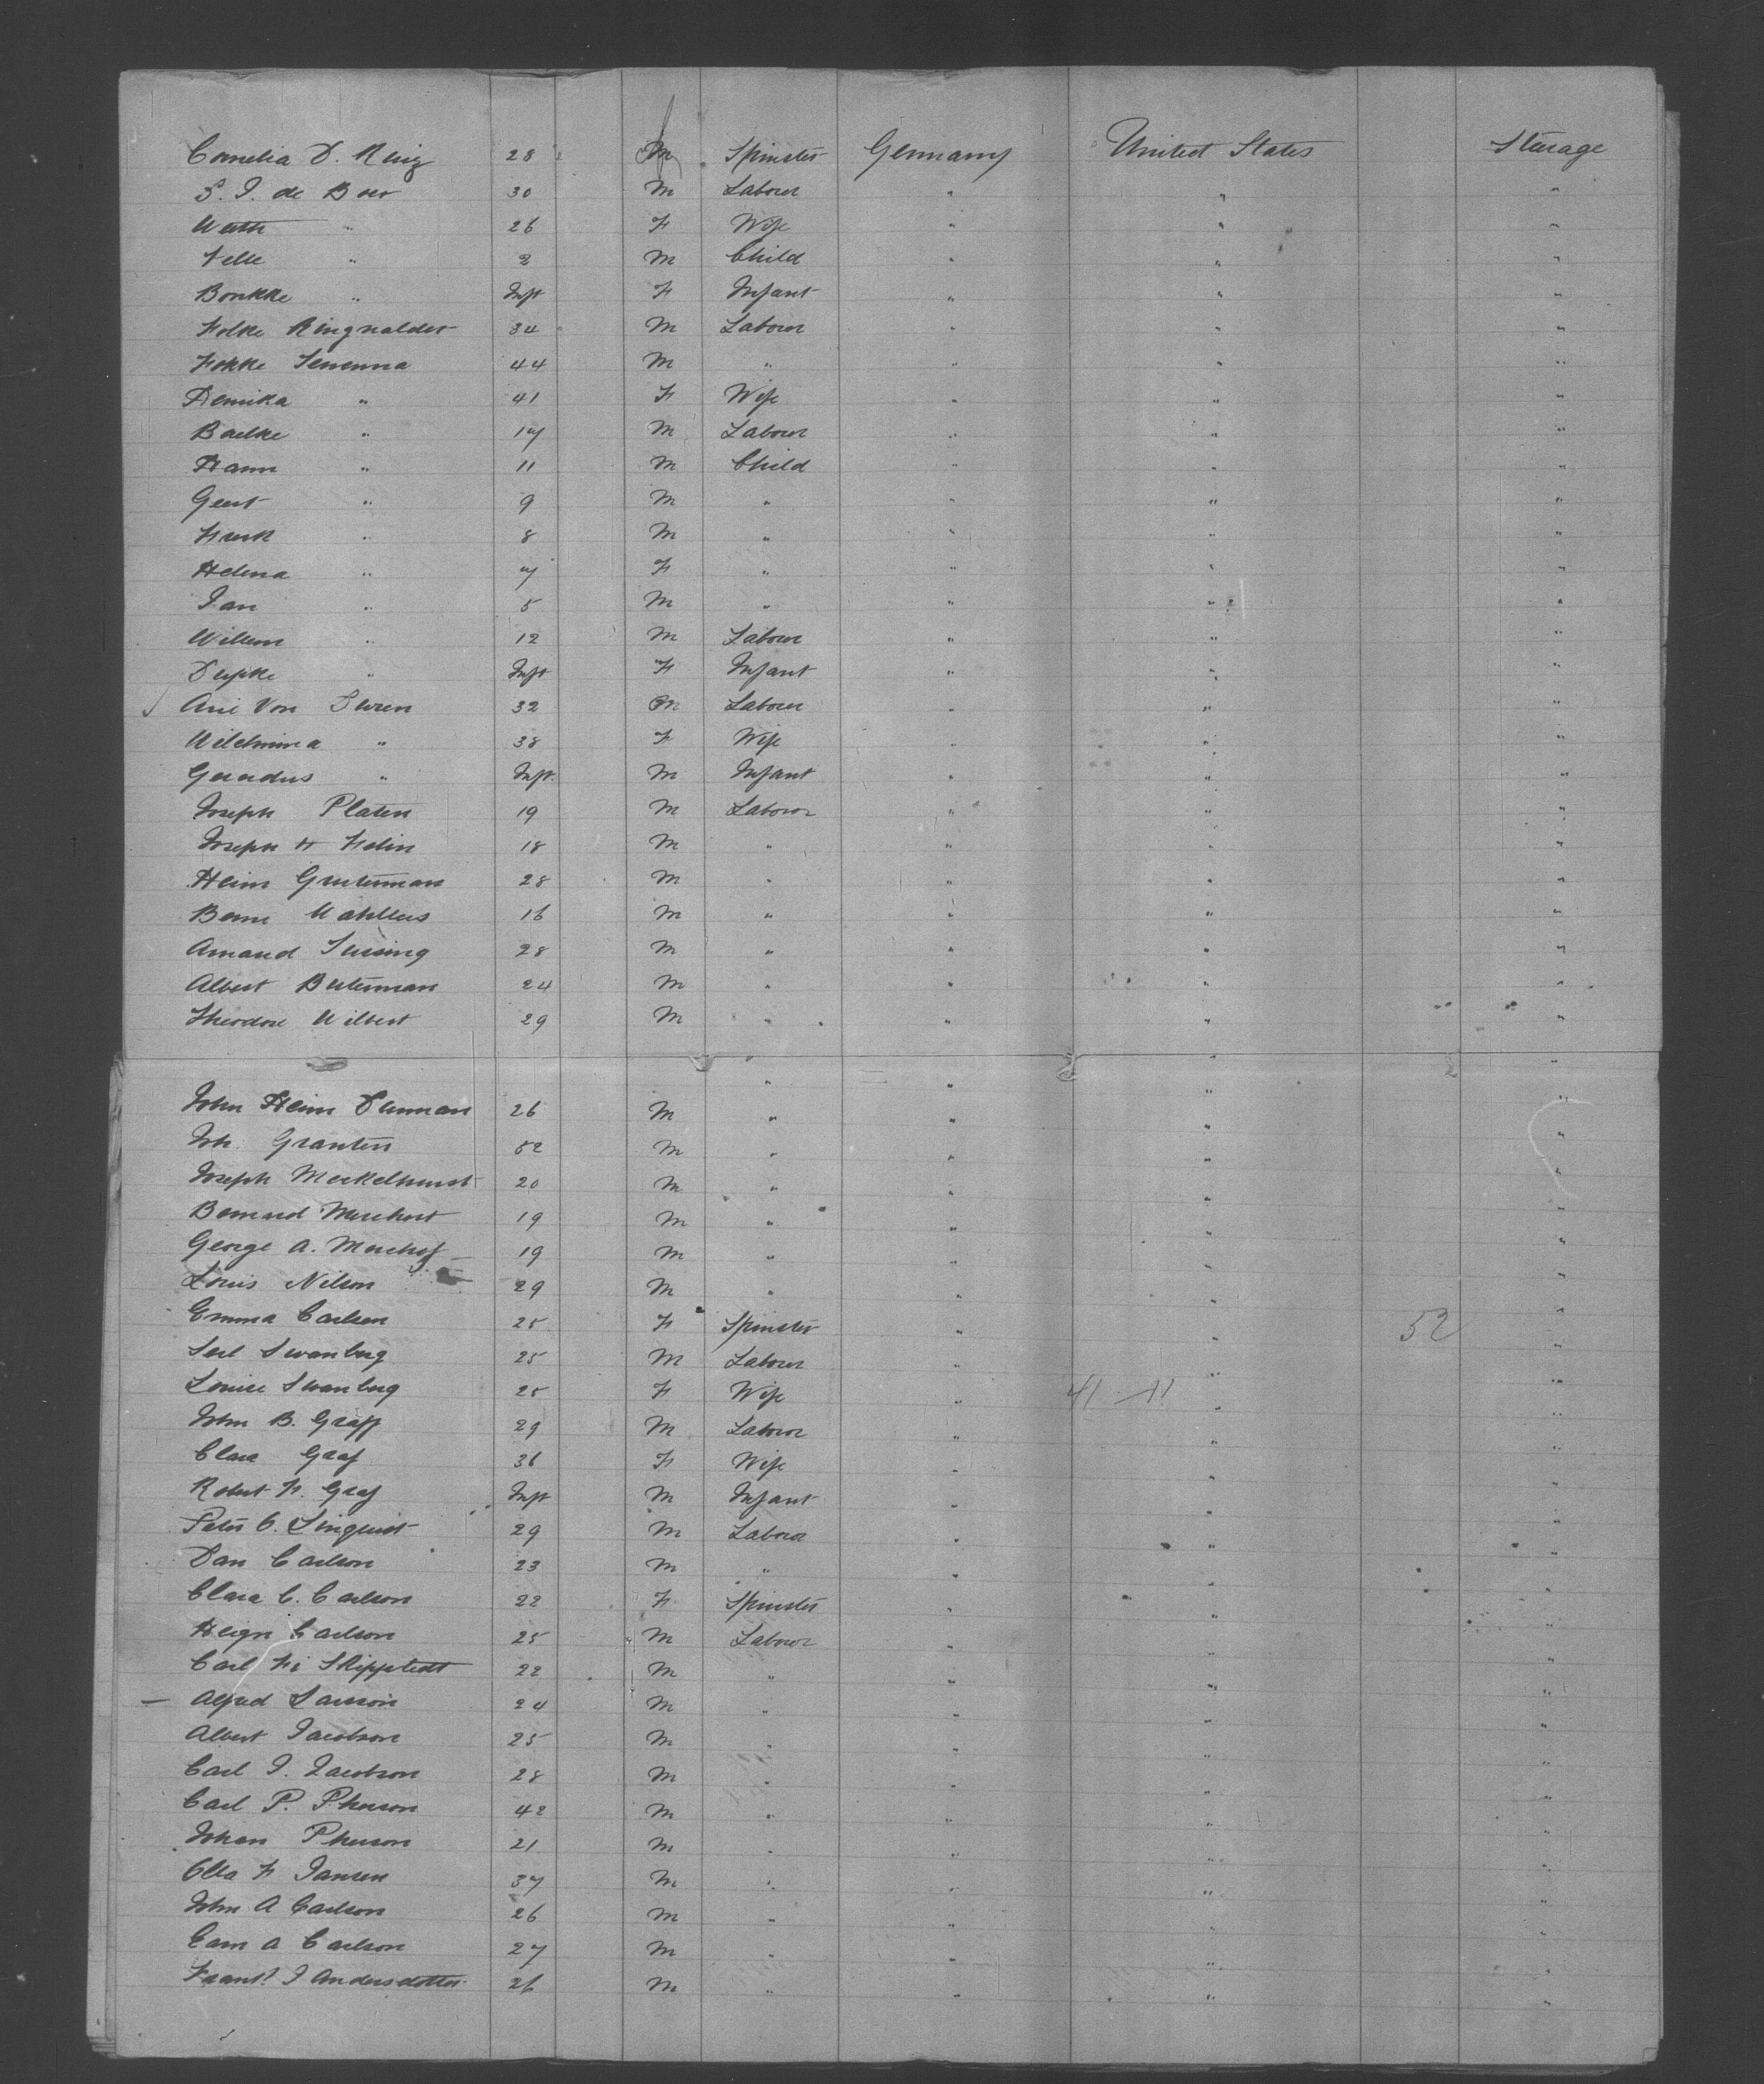 Cornelia D. Ring 28 M f Spinster Germany United States Steerage
S. J. de Boer 30 M Laborer " " "
" 26 F Wife " " "
Jelle " 2 M Child " " "
Bonkke " Inft F Infant " " "
Folke Ringnalder 34 M Laborer " " "
Fokke 44 M " " " "
Hemika " 41 F Wife " " "
Baelke " 17 M Laborer " " "
Harm " 11 M Child " " "
Geert " 9 M " " " "
Freek " 8 M " " " "
Helena " 7 F " " " "
Jan " 5 M " " " "
Willem " 12 M Laborer " " "
Depke " Inft F Infant " " "
Arie Von Suren 32 M Laborer " " "
Wilelmina " 38 F Wife " " "
Gerardus " Inft. M Infant " " "
Joseph Platen 19 M Laborer " " "
Joseph H Felin 18 M " " " "
Heim Gruterman 28 M " " " "
Bern 16 M " " " "
Amand 28 M " " " "
Albert Buterman 24 M " " " "
Theodore Wilbert 29 M " " " "
John Heim 26 M " " " "
Joh. Granten 52 M " " " "
Joseph Merkelhurst 20 M " " " "
Bernard 19 M " " " "
George A. 19 M " " " "
Louis Nilson 29 M " " " "
Emma Carlson 25 F Spinster " " 52 "
Swanberg 25 M Laborer " " "
Louise Swanberg 25 F Wife " 41 11 " "
John B. Graff 29 M Laborer " " "
Clara Graf 36 F Wife " " "
Robert F. Graf Inft M Infant " " "
Peter C. Linquist 29 M Laborer " " "
Dan Carlson 23 M " " " "
Clara C. Carlson 22 F Spinster " " "
Heign Carlson 25 M Laborer " " "
Carl Fr Skippstedt 22 M " " " "
— Alfred Larsson 24 M " " " "
Albert Jacobson 25 M " " " "
Carl J. Jacobson 28 M " " " "
Carl P. Pherson 42 M " " " "
Johan Pherson 21 M " " " "
Olla F Jansen 37 M " " " "
John A Carlson 26 M " " " "
Earn A Carlson 27 M " " " "
Frank J Andersdotter 26 M " " " "